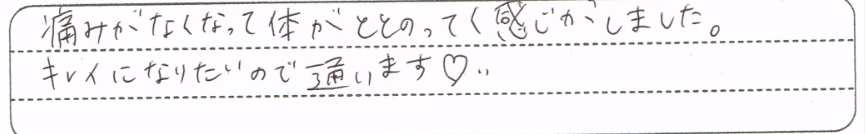 痛みがなくなって体がととのってく感じがしました。
キレイになりたいので通います♡..